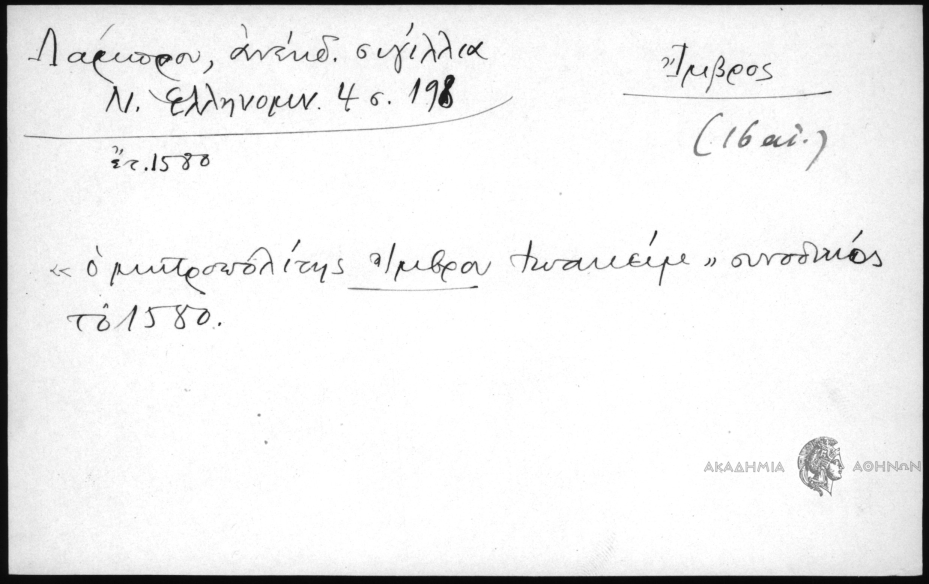 Λάμπρου, ἀνέκδ. σιγίλλια
Ν. Ἑλληνομν. 4 σ. 198
ἔτ. 1580
Ἴμβρος
(16 αἰ.)
« ὁ μητροπολίτης Ἴμβρου Ἰωακείμ » συνοδικός
τὸ 1580.
ΑΚΑΔΗΜΙΑ ΑΘΗΝΩΝ